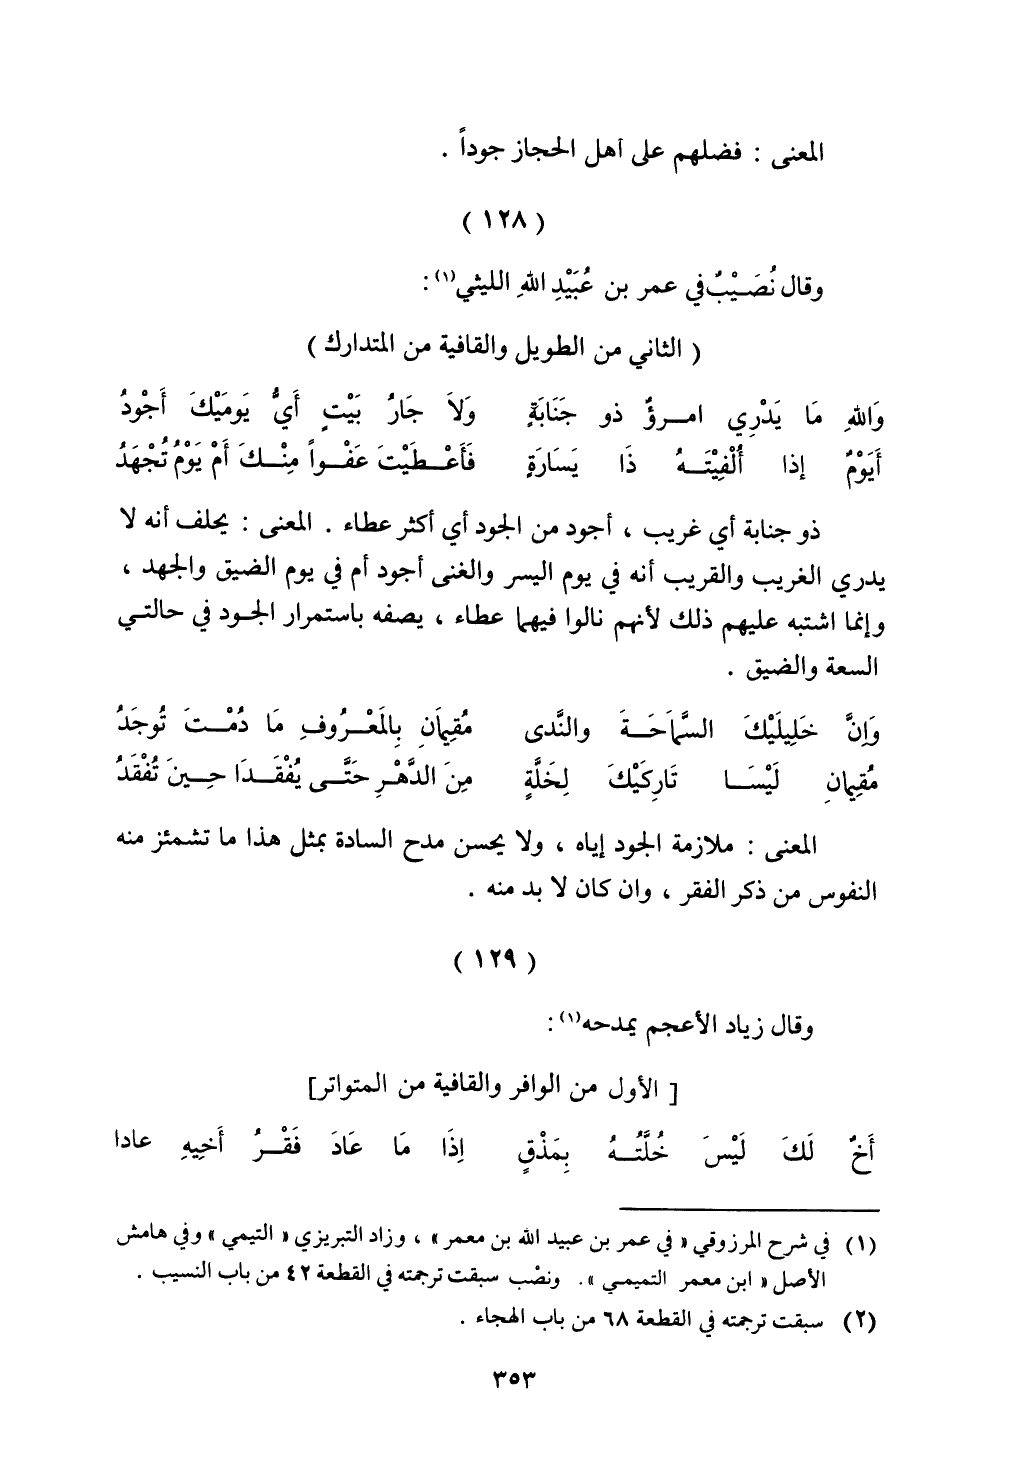 المعنى : فضلهم على أهل الحجاز جوداً .
( ١٢٨ )
وقال نُصَيْبٌ في عمر بن عُبَيْدِ اللهِ الليثي(١) :
( الثاني من الطويل والقافية من المتدارك )
وَاللهِ مَا يَدْرِي امرؤٌ ذو جَنَابَةٍ وَلاَ جَارُ بَيْتٍ أَيُّ يَومَيْكَ أَجْودُ
أَيَوْمٌ إذا أُلْفِيْتَهُ ذَا يَسَارَةٍ فَأَعْطَيْتَ عَفْواً مِنْكَ أَمْ يَوْمُ تُجْهَدُ
ذو جنابة أي غريب ، أجود من الجود أي أكثر عطاء . المعنى : يحلف أنه لا
يدري الغريب والقريب أنه في يوم اليسر والغنى أجود أم في يوم الضيق والجهد ،
وإنما اشتبه عليهم ذلك لأنهم نالوا فيهما عطاء ، يصفه باستمرار الجود في حالتي
السعة والضيق .
وَإنَّ خَلِيلَيْكَ السَّمَاحَةَ والنَّدى مُقِيمَانِ بِالمَعْرُوفِ مَا دُمْتَ تُوجَدُ
مُقِيمانِ لَيْسَا تَارِكَيْكَ لِخَلَّةٍ مِنَ الدَّهْرِ حَتَّى يُفْقَدَا حِينَ تُفْقَدُ
المعنى : ملازمة الجود إياه ، ولا يحسن مدح السادة بمثل هذا ما تشمئز منه
النفوس من ذكر الفقر ، وان كان لا بد منه .
( ١٢٩ )
وقال زياد الأعجم يمدحه(١) :
[ الأول من الوافر والقافية من المتواتر]
أَخٌ لَكَ لَيْسَ خُلَّتُهُ بِمَذْقٍ إذَا مَا عَادَ فَقْرُ أَخِيهِ عادا
(١) في شرح المرزوقي « في عمر بن عبيد الله بن معمر » ، وزاد التبريزي « التيمي » وفي هامش
الأصل « ابن معمر التميمي » . ونصْب سبقت ترجمته في القطعة ٤٢ من باب النسيب .
(٢) سبقت ترجمته في القطعة ٦٨ من باب الهجاء .
٣٥٣